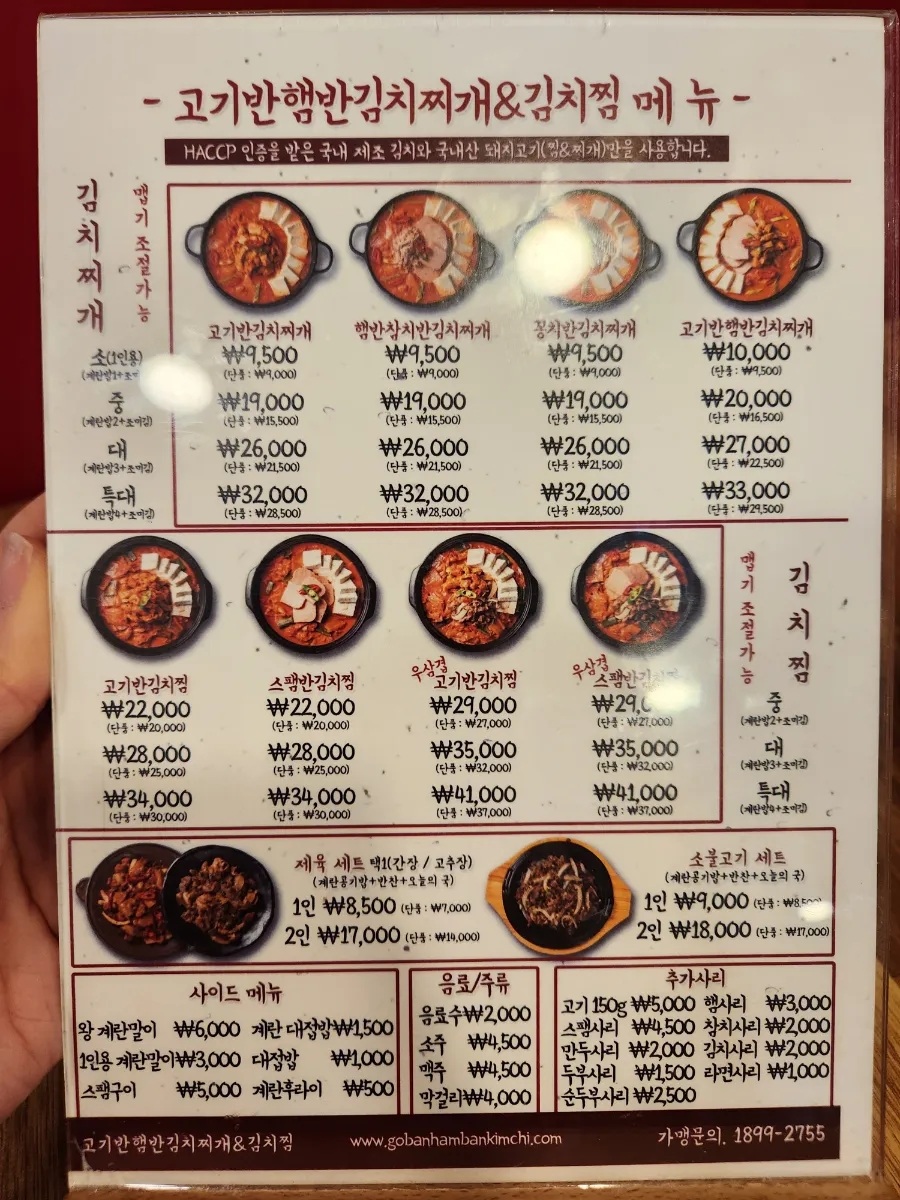 - 고기반햄반김치찌개&김치찜 메 뉴 -
HACCP 인증을 받은 국내 제조 김치와 국내산 돼지고기(찜&찌개)만을 사용합니다.
김치찌개
맵기 조절가능
고기반김치찌개 햄반참치반김치찌개 꽁치반김치찌개 고기반햄반김치찌개
소(1인용) ₩9,500 ₩9,500 ₩9,500 ₩10,000
(계란밥1+조 (단품 : ₩9,000) (단품 : ₩9,000) (단품 : ₩9,000) (단품 : ₩9,500)
중 ₩19,000 ₩19,000 ₩19,000 ₩20,000
(계란밥2+조미김) (단품 : ₩15,500) (단품 : ₩15,500) (단품 : ₩15,500) (단품 : ₩16,500)
대 ₩26,000 ₩26,000 ₩26,000 ₩27,000
(계란밥3+조미김) (단품 : ₩21,500) (단품 : ₩21,500) (단품 : ₩21,500) (단품 : ₩22,500)
특대 ₩32,000 ₩32,000 ₩32,000 ₩33,000
(계란밥4+조미김) (단품 : ₩28,500) (단품 : ₩28,500) (단품 : ₩28,500) (단품 : ₩29,500)
맵기 조절가능
김치찜
우삼겹 우삼겹
고기반김치찜 스팸반김치찜 고기반김치찜 스팸반김치찜
₩22,000 ₩22,000 ₩29,000 중
(단품 : ₩20,000) (단품 : ₩20,000) (단품 : ₩27,000) (단품 : ₩27,000) (계란밥2+조미김)
₩28,000 ₩28,000 ₩35,000 ₩35,000 대
(단품 : ₩25,000) (단품 : ₩25,000) (단품 : ₩32,000) (단품 : ₩32,000) (계란밥3+조미김)
₩34,000 ₩34,000 ₩41,000 ₩41,000 특대
(단품 : ₩30,000) (단품 : ₩30,000) (단품 : ₩37,000) (단품 : ₩37,000) (계란밥4+조미김)
제육 세트 택1(간장 / 고추장)
(계란공기밥+반찬+오늘의 국)
1인 ₩8,500 (단품 : ₩7,000)
2인 ₩17,000 (단품 : ₩14,000)
소불고기 세트
(계란공기밥+반찬+오늘의 국)
1인 ₩9,000 (단품 : ₩8,500)
2인 ₩18,000 (단품 : ₩17,000)
사이드 메뉴
왕 계란말이 ₩6,000 계란 대접밥 ₩1,500
1인용 계란말이 ₩3,000 대접밥 ₩1,000
스팸구이 ₩5,000 계란후라이 ₩500
음료/주류
음료수 ₩2,000
소주 ₩4,500
맥주 ₩4,500
막걸리 ₩4,000
추가사리
고기 150g ₩5,000 햄사리 ₩3,000
스팸사리 ₩4,500 참치사리 ₩2,000
만두사리 ₩2,000 김치사리 ₩2,000
두부사리 ₩1,500 라면사리 ₩1,000
순두부사리 ₩2,500
고기반햄반김치찌개&김치찜 www.gobanhambankimchi.com 가맹문의. 1899-2755